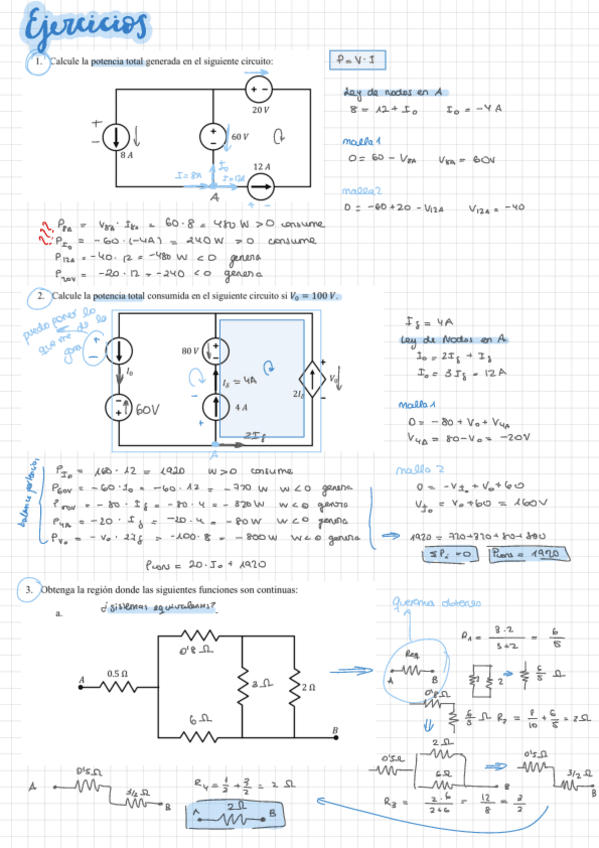 Ejercicios
1. Calcule la potencia total generada en el siguiente circuito:
P = V · I
20 V
60 V
8 A
12 A
I = 8A
I₀
I = 12A
A
Ley de nodos en A
8 = 12 + I₀ I₀ = -4A
malla 1
0 = 60 - V8A V8A = 60V
malla 2
0 = -60 + 20 - V12A V12A = -40
???
P8A = V8A · I8A = 60 · 8 = 480 W > 0 consume
PI₀ = -60 · (-4A) = 240 W > 0 consume
P12A = -40 · 12 = -480 W < 0 genera
P20V = -20 · 12 = -240 < 0 genera
2. Calcule la potencia total consumida en el siguiente circuito si V₀ = 100 V.
puedo poner lo que me de la gana
80 V
I₀
Iδ = 4A
4 A
2Iδ
V₀
60V
2Iδ
A
Iδ = 4A
Ley de Nodos en A
I₀ = 2Iδ + Iδ
I₀ = 3Iδ = 12A
malla 1
0 = -80 + V₀ + V4A
V4A = 80 - V₀ = -20V
malla 2
0 = -VI₀ + V₀ + 60
VI₀ = V₀ + 60 = 160V
balance potencias
PI₀ = 160 · 12 = 1920 W > 0 consume
P60V = -60 · I₀ = -60 · 12 = -720 W W < 0 genera
= -80 · Iδ = -80 · 4 = -320 W W < 0 genera
P4A = -20 · Iδ = -20 · 4 = -80 W W < 0 genera
PV₀ = -V₀ · 2Iδ = -100 · 8 = -800 W W < 0 genera
1920 = 720 + 320 + 80 + 800
ΣPi = 0 Pcons = 1920
Pcons = 20 · I₀ + 1920
3. Obtenga la región donde las siguientes funciones son continuas:
a. ¿sistemas equivalentes?
queremos obtener
A
0.5 Ω
0'8 Ω
3 Ω
2 Ω
6 Ω
B
REq
A B
R1 = 3·2 / 3+2 = 6/5
2
6/5 Ω
0'8 Ω
6/5 Ω R2 = 8/10 + 6/5 = 2 Ω
0'5 Ω
2 Ω
6 Ω
B
0'5 Ω
3/2 Ω
B
R3 = 2·6 / 2+6 = 12/8 = 3/2
A
0'5 Ω
3/2 Ω
B
R4 = 1/2 + 3/2 = 2 Ω
A 2 Ω B